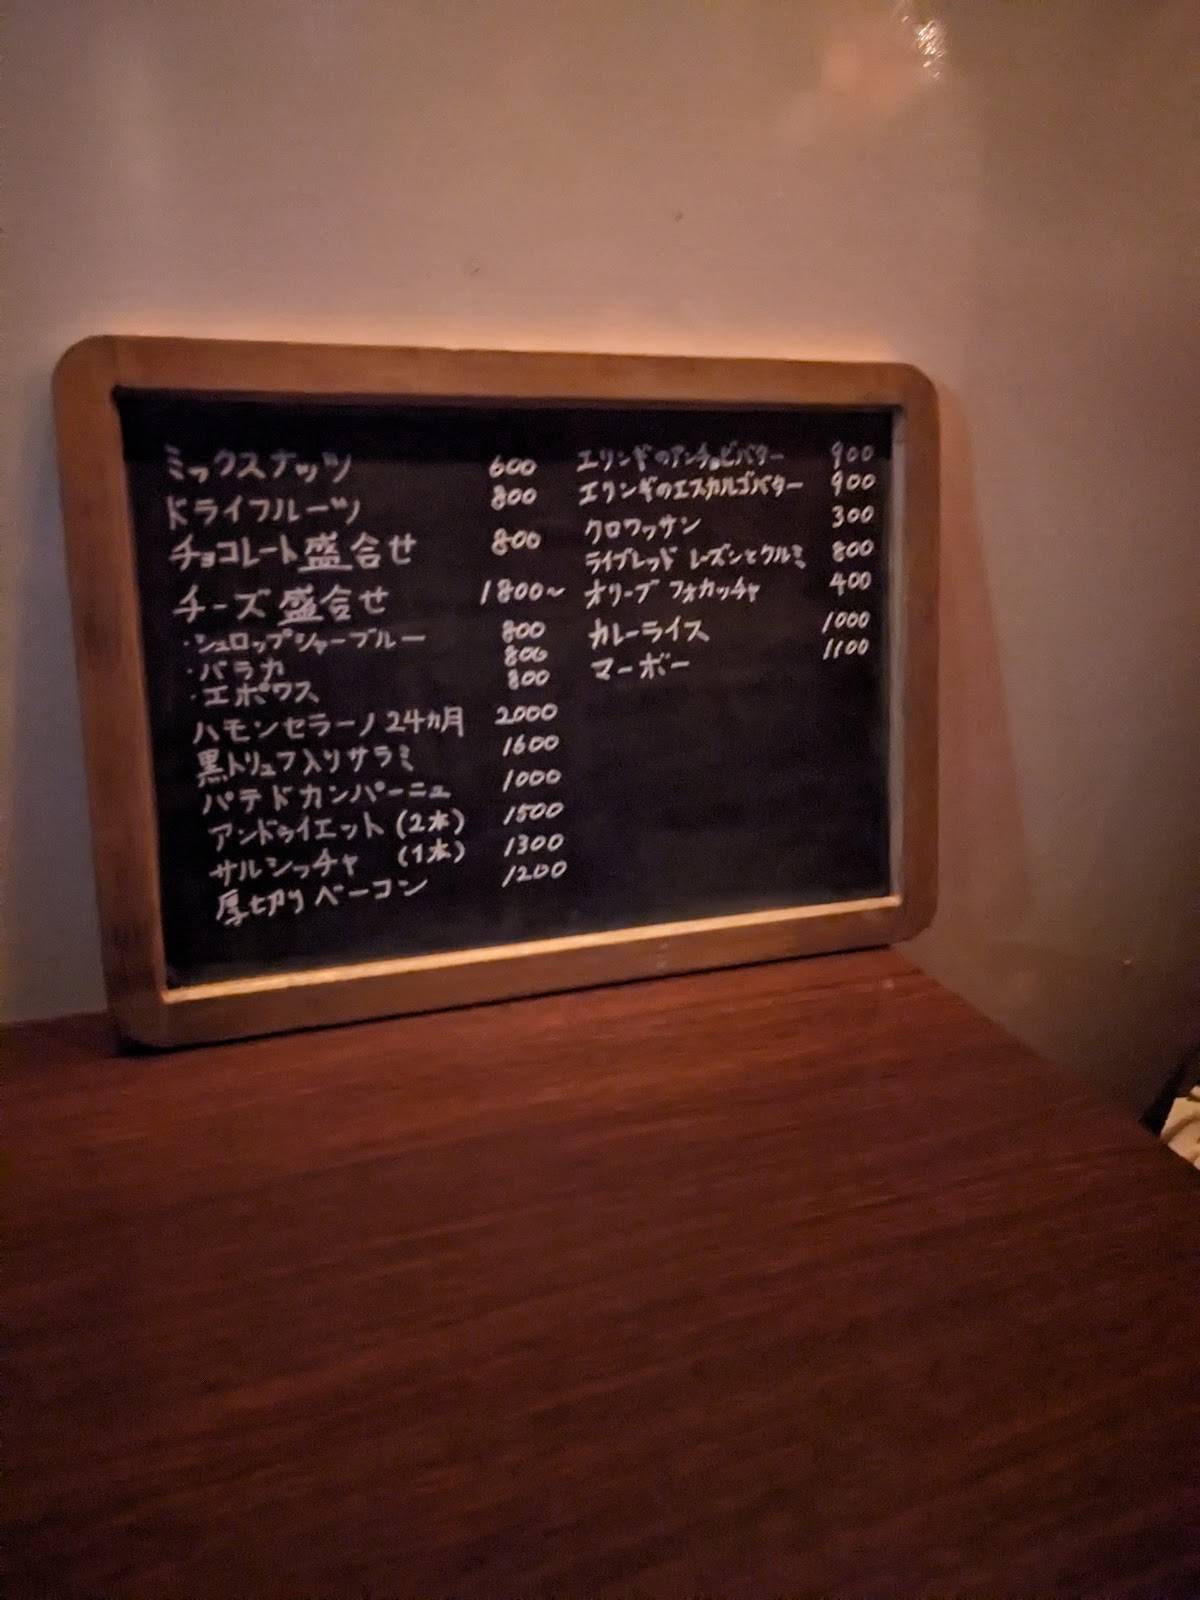 ミックスナッツ 600
ドライフルーツ 800
チョコレート盛合せ 800
チーズ盛合せ 1800〜
・シュロップシャーブルー 800
・バラカ 800
・エポワス 800
ハモンセラーノ24ヵ月 2000
黒トリュフ入りサラミ 1600
パテドカンパーニュ 1000
アンドゥイエット(2本) 1500
サルシッチャ (1本) 1300
厚切りベーコン 1200
エリンギのアンチョビバター 900
エリンギのエスカルゴバター 900
クロワッサン 300
ライブレッド レーズンとクルミ 800
オリーブ フォカッチャ 400
カレーライス 1000
マーボー 1100